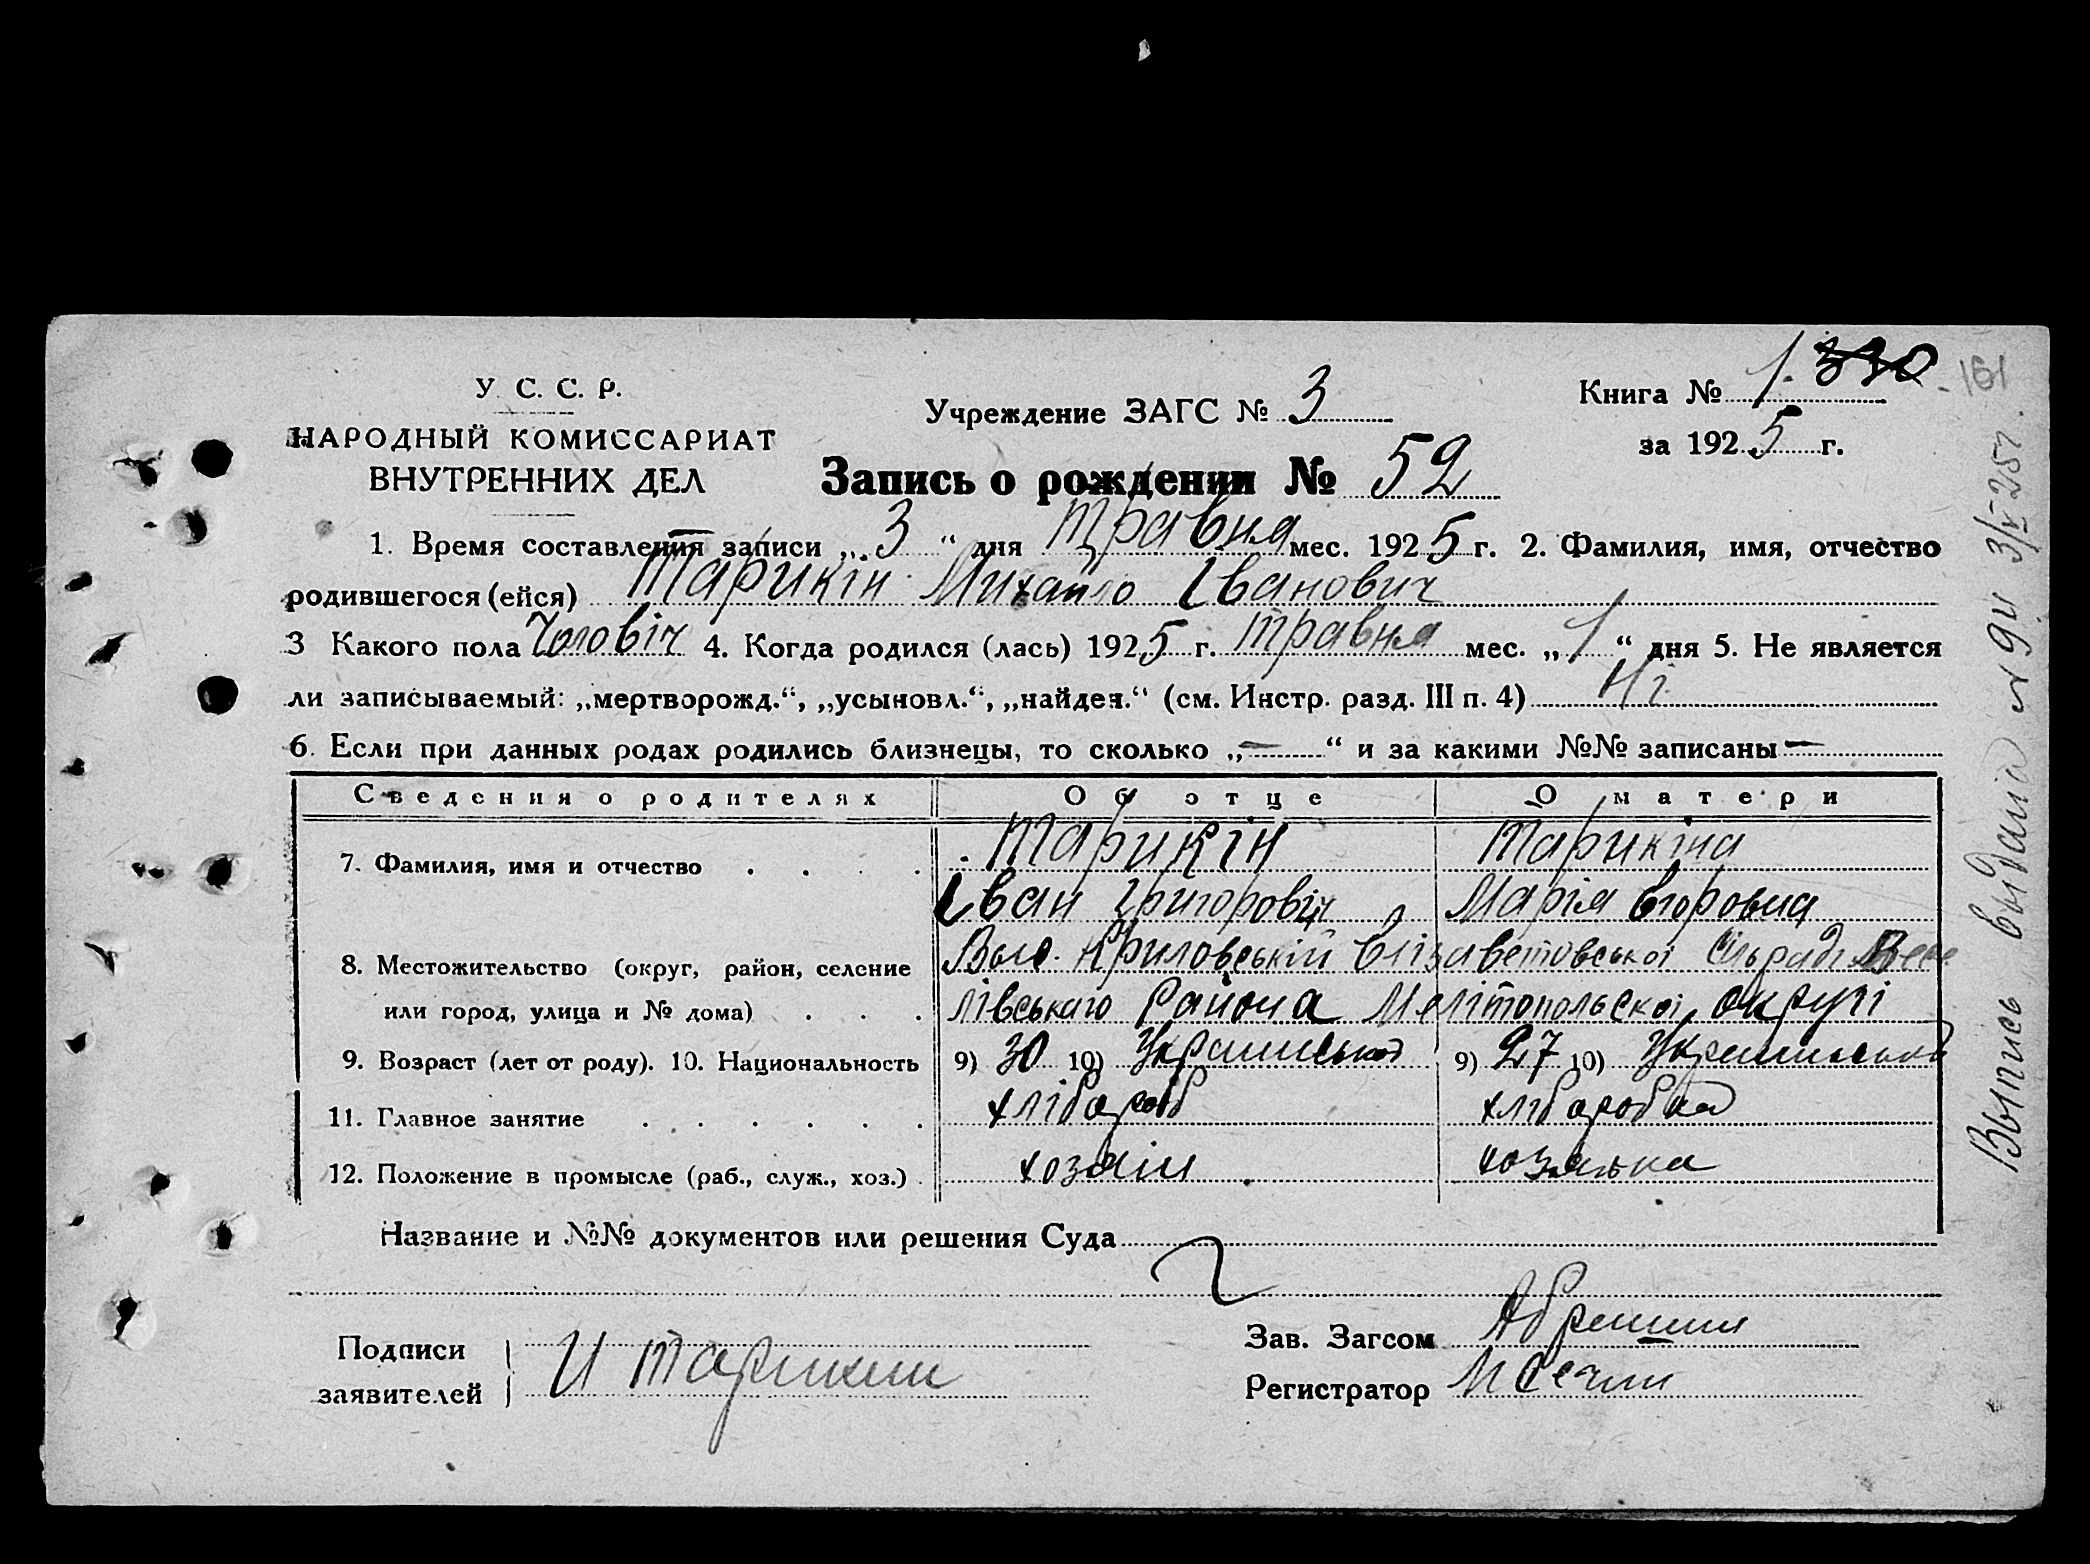 У. С. С. Р.
НАРОДНЫЙ КОМИССАРИАТ
ВНУТРЕННИХ ДЕЛ
Учреждение ЗАГС № 3
Книга № 1. 330 161
за 1925 г.
Запись о рождении № 52
1. Время составления записи „3“ дня Травня мес. 1925 г. 2. Фамилия, имя, отчество
родившегося (ейся) Тарикін Михайло Іванович
3 Какого пола Чоловіч 4. Когда родился (лась) 1925 г. травня мес. „1“ дня 5. Не является
ли записываемый: „мертворожд.“, „усыновл.“, „найден.“ (см. Инстр. разд. III п. 4) Ні
6. Если при данных родах родились близнецы, то сколько „—“ и за какими №№ записаны —
Сведения о родителях Об отце О матери
7. Фамилия, имя и отчество Тарикін Тарикіна
Іван Григорович Марія Єгоровна
8. Местожительство (округ, район, селение Выс. Криловській Єлізаветовської Сільради Весе
или город, улица и № дома) лівського Района Мелітопольскоі округі
9. Возраст (лет от роду). 10. Национальность 9) 30 10) Украинської 9) 27 10) Украинської
11. Главное занятие хлібороб хліборобка
12. Положение в промысле (раб., служ., хоз.) хозяін хозяька
Название и №№ документов или решения Суда
Подписи
заявителей И Тарикин
Зав. Загсом
Регистратор
Выпись выдана 3/V-25г.